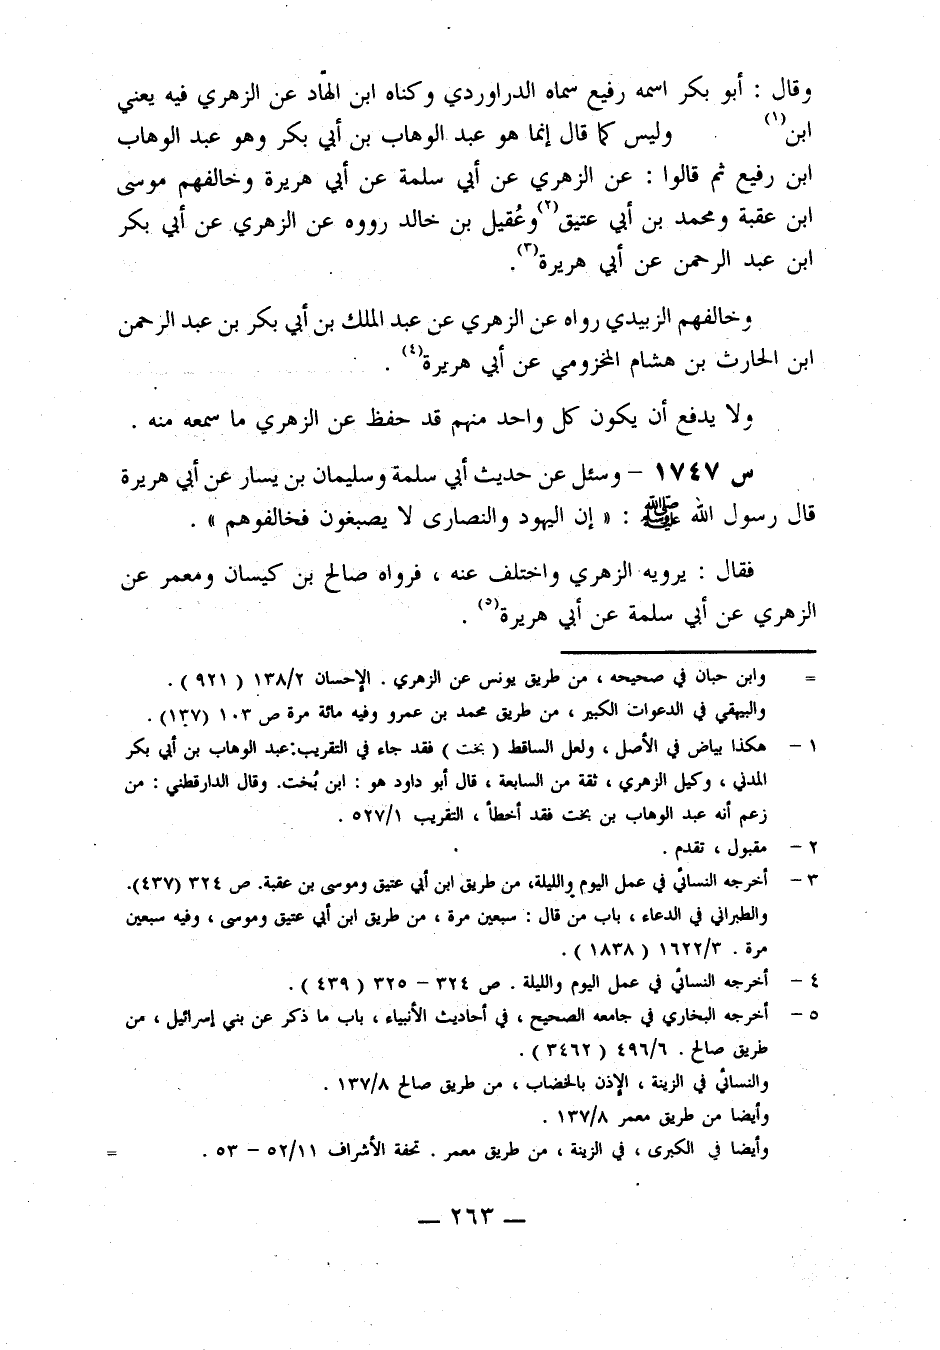 وقال : أبو بكر اسمه رفيع سماه الدراوردي وكناه ابن الهاد عن الزهري فيه يعني
ابن(١) وليس كما قال إنما هو عبد الوهاب بن أبي بكر وهو عبد الوهاب
ابن رفيع ثم قالوا : عن الزهري عن أبي سلمة عن أبي هريرة وخالفهم موسى
ابن عقبة ومحمد بن أبي عتيق(٢) وعُقيل بن خالد رووه عن الزهري عن أبي بكر
ابن عبد الرحمن عن أبي هريرة(٣) .
وخالفهم الزبيدي رواه عن الزهري عن عبد الملك بن أبي بكر بن عبد الرحمن
ابن الحارث بن هشام المخزومي عن أبي هريرة(٤) .
ولا يدفع أن يكون كل واحد منهم قد حفظ عن الزهري ما سمعه منه .
س ١٧٤٧ – وسئل عن حديث أبي سلمة وسليمان بن يسار عن أبي هريرة
قال رسول الله ﷺ : « إن اليهود والنصارى لا يصبغون فخالفوهم » .
فقال : يرويه الزهري واختلف عنه ، فرواه صالح بن كيسان ومعمر عن
الزهري عن أبي سلمة عن أبي هريرة(٥) .
= وابن حبان في صحيحه ، من طريق يونس عن الزهري . الإحسان ١٣٨/٢ ( ٩٢١ ) .
والبيهقي في الدعوات الكبير ، من طريق محمد بن عمرو وفيه مائة مرة ص ١٠٣ (١٣٧) .
١ – هكذا بياض في الأصل ، ولعل الساقط ( بخت ) فقد جاء في التقريب:عبد الوهاب بن أبي بكر
المدني ، وكيل الزهري ، ثقة من السابعة ، قال أبو داود هو : ابن بُخت. وقال الدارقطني : من
زعم أنه عبد الوهاب بن بخت فقد أخطأ ، التقريب ٥٢٧/١ .
٢ – مقبول ، تقدم .
٣ – أخرجه النسائي في عمل اليوم والليلة، من طريق ابن أبي عتيق وموسى بن عقبة. ص ٣٢٤ (٤٣٧).
والطبراني في الدعاء ، باب من قال : سبعين مرة ، من طريق ابن أبي عتيق وموسى ، وفيه سبعين
مرة . ١٦٢٢/٣ ( ١٨٣٨ ) .
٤ – أخرجه النسائي في عمل اليوم والليلة . ص ٣٢٤ – ٣٢٥ ( ٤٣٩ ) .
٥ – أخرجه البخاري في جامعه الصحيح ، في أحاديث الأنبياء ، باب ما ذكر عن بني إسرائيل ، من
طريق صالح . ٤٩٦/٦ ( ٣٤٦٢ ) .
والنسائي في الزينة ، الإذن بالخضاب ، من طريق صالح ١٣٧/٨ .
وأيضا من طريق معمر ١٣٧/٨ .
وأيضا في الكبرى ، في الزينة ، من طريق معمر . تحفة الأشراف ٥٢/١١ – ٥٣ . =
— ٢٦٣ —